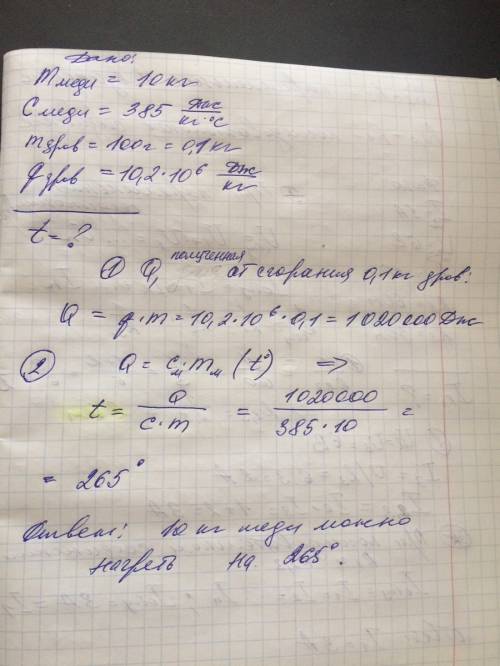 Дано:
m меди = 10 кг
C меди = 385 Дж/кг·°С
m дров = 100г = 0,1 кг
q дров = 10,2·10⁶ Дж/кг
t = ?
① Q₁ полученная от сгорания 0,1 кг дров:
Q = q·m = 10,2·10⁶·0,1 = 1020000 Дж
② Q = cм·mм (t°) ⇒
t = Q/c·m = 1020000/385·10 =
= 265°
Ответ: 10 кг меди можно
нагреть на 265°.